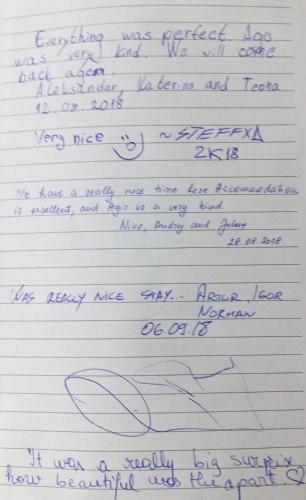 Everything was perfect Agis
was very kind. We will come
back again.
Aleksandar, Katerina and Teona
12.08.2018
Very nice ~ STEFFXΔ
2K18
We have a really nice time here Accommodation
is excellent, and Agis is a very kind
Nino, Andrej and
28.08.2018.
WAS REALLY NICE STAY... ARTUR, IGOR
NORMAN
06.09.18
It was a really big surprix
how beautiful was the apart ♡